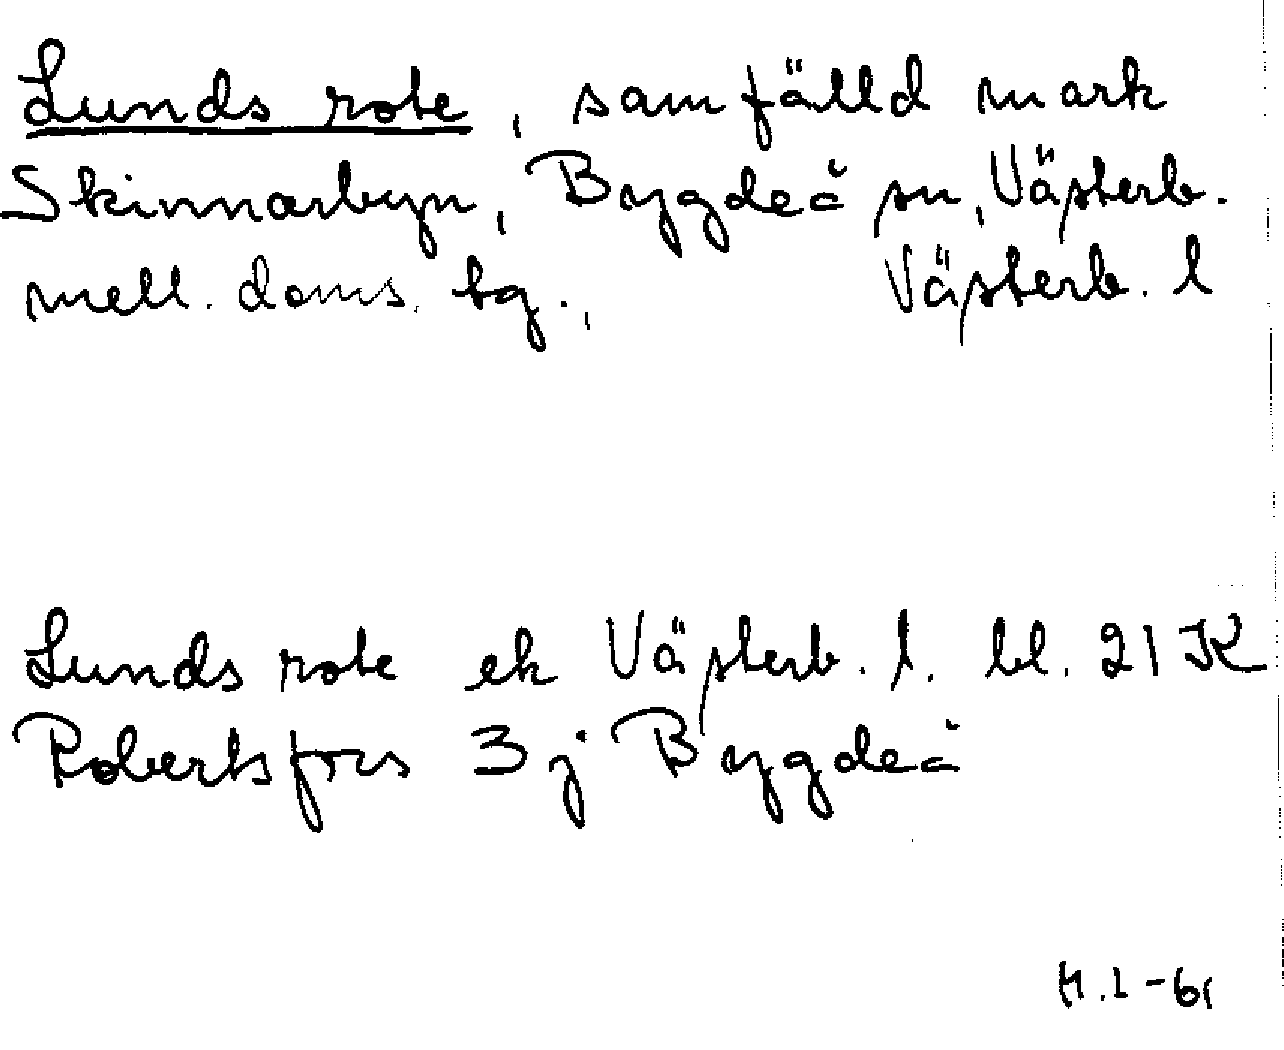 Lunds rote, samfälld mark
Skinnarbyn, Bygdeå sn, Västerb.
mell. doms. tg., Västerb. l
Lunds rote ek Västerb. l. bl. 21 K
Robertsfors 3j Bygdeå
H.L-61